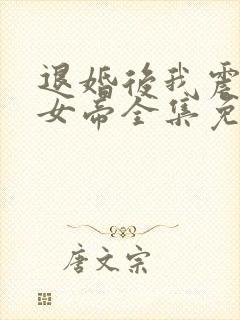 退婚後我震
女帝全集免
唐文宗